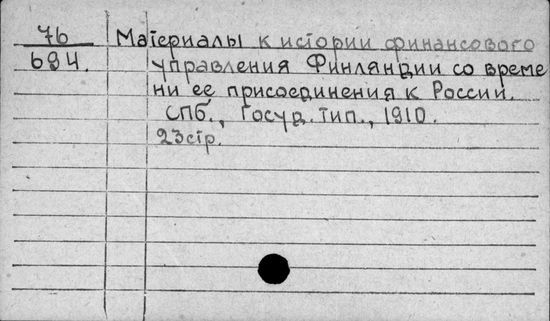 76 Материалы к истории финансового
684. управления Финляндии со време
ни ее присоединения к России.
СПб., Госуд. тип., 1910.
23 стр.